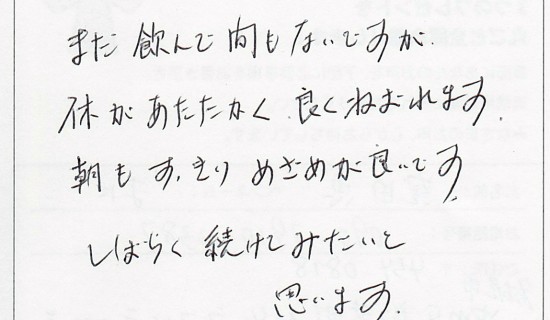 まだ飲んで間もないですが、
体があたたかく良くねむれます。
朝もすっきりめざめが良いです。
しばらく続けてみたいと
思います。